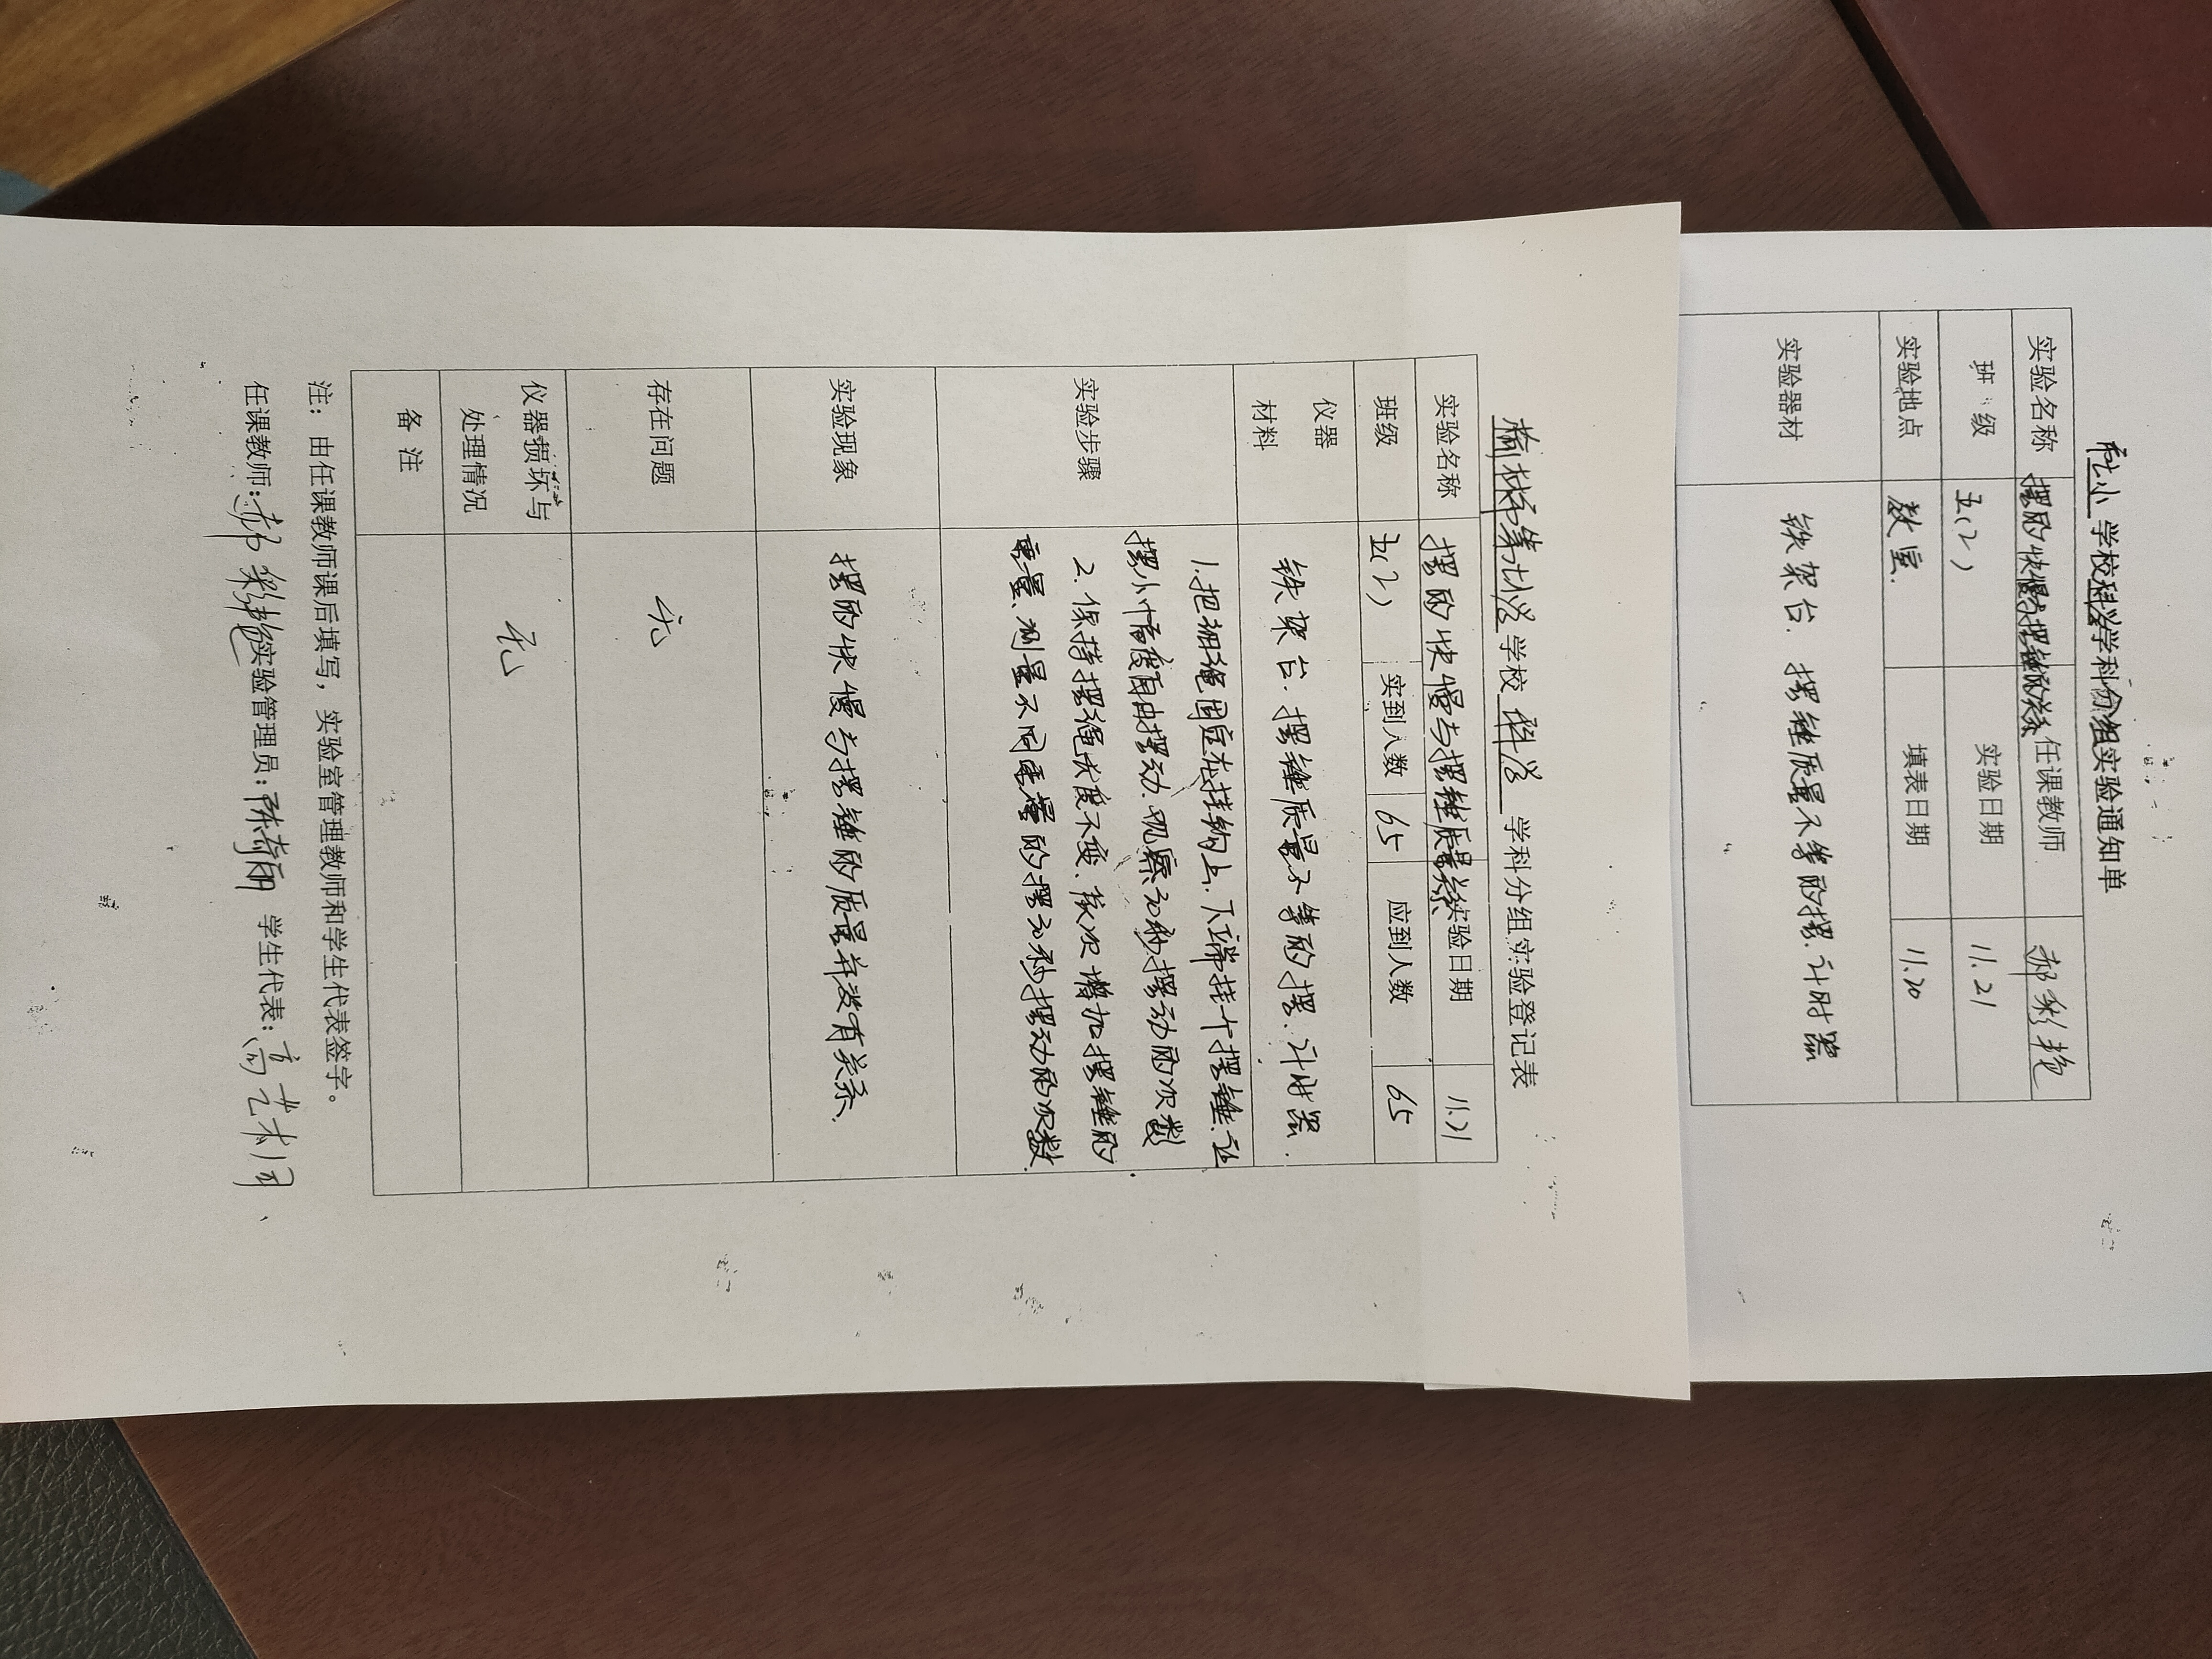 学校科学学科分组实验通知单
实验名称 摆的快慢与摆锤的关系 任课教师 郝彩艳
班级 五(2) 实验日期 11.21
实验地点 教室. 填表日期 11.20
实验器材 铁架台. 摆锤质量不等的摆. 计时器
学校 科学 学科分组实验登记表
实验名称 摆的快慢与摆锤质量关系 实验日期 11.21
班级 五(2) 实到人数 65 应到人数 65
仪器
材料
铁架台. 摆锤质量不等的摆. 计时器.
实验步骤
1. 把细绳固定在挂钩上. 下端挂一个摆锤. 让
摆小幅度自由摆动. 观察30秒摆动的次数
2. 保持摆绳长度不变. 依次增加摆锤的
重量、测量不同重量的摆30秒摆动的次数.
实验现象 摆的快慢与摆锤的质量并没有关系、
存在问题 无
仪器损坏与
处理情况
无
备 注
注：由任课教师课后填写，实验室管理教师和学生代表签字。
任课教师: 郝彩艳 实验管理员: 陈 学生代表: 高艺